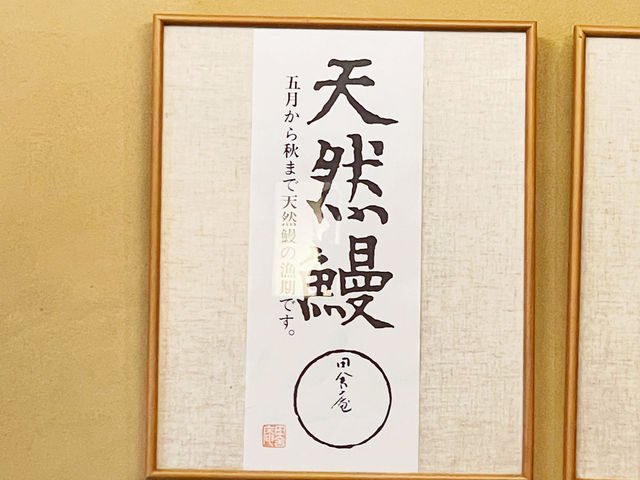 天然鰻
五月から秋まで天然鰻の漁期です。
田舎屋